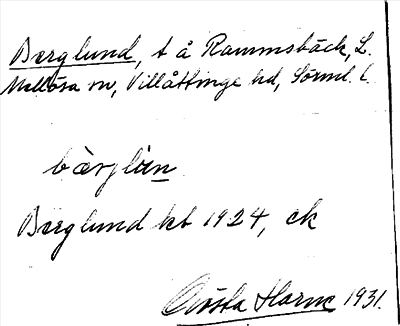 Berglund, t å Rammsbäck, L.
Mellösa sn, Villåttinge hd, Sörml. l.
bärglùn
Berglund kb 1924, ek
Gösta Harne 1931.